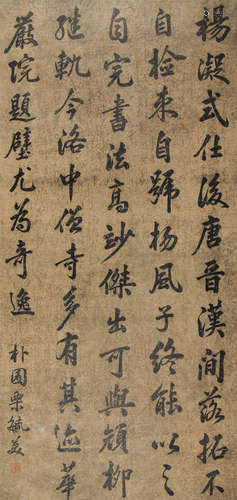 楊凝式仕後唐晉漢間落拓不
自檢束自號楊風子終能以之
自完書法高妙傑出可與顏柳
繼軌今洛中僧寺多有其迹華
嚴院題壁尤為奇逸
朴園栗毓美